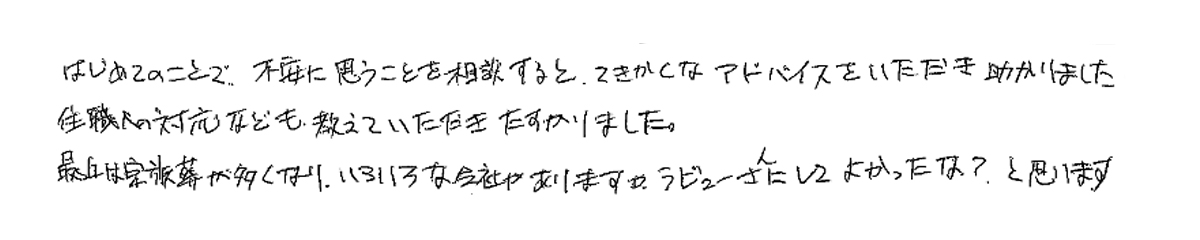 はじめてのことで、不安に思うことを相談すると、てきかくなアドバイスをいただき助かりました
住職への対応なども、教えていただきたすかりました。
最近は家族葬が多くなり、いろいろな会社がありますが、ラビューさんにしてよかったな？と思います